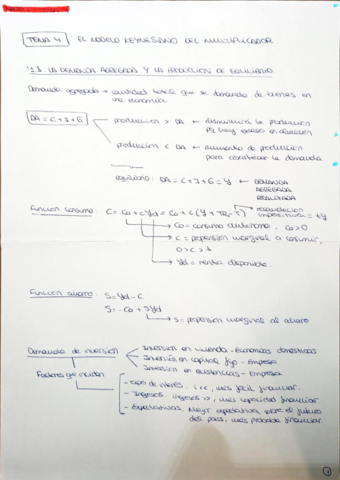 TEMA 4 EL MODELO KEYNESIANO DEL MULTIPLICADOR.
4.1. LA DEMANDA AGREGADA Y LA PRODUCCION DE EQUILIBRIO.
Demanda agregada → cantidad total que se demanda de bienes en
una economía.
DA = C+I+G
produccion > DA → disminuirá la producción
pq hay exceso en almacen
produccion < DA → aumento de producción
para abastecer la demanda
equilibrio: DA = C+I+G = Y → DEMANDA
AGREGADA
Funcion consumo: C = Co + cYd = Co + c(Y + TR - T)
recaudacion
impositiva = tY
Co = consumo autonomo, Co>0
c = propension marginal a consumir,
0 < c > 1
Yd = renta disponible.
Funcion ahorro: S = Yd - C
S = -Co + SYd
s = propension marginal al ahorro
Demanda de inversion
Inversion en vivienda - Economias domesticas
Inversión en capital fijo - Empresa
Inversion en existencias - Empresa
Factores que inciden
- Tipo de interes. i <<, más facil financiar.
- Ingresos. ingresos >>, más capacidad financiar
- Expectativas. Mejor expectativa sobre el futuro
del pais, más probable financiar.
1